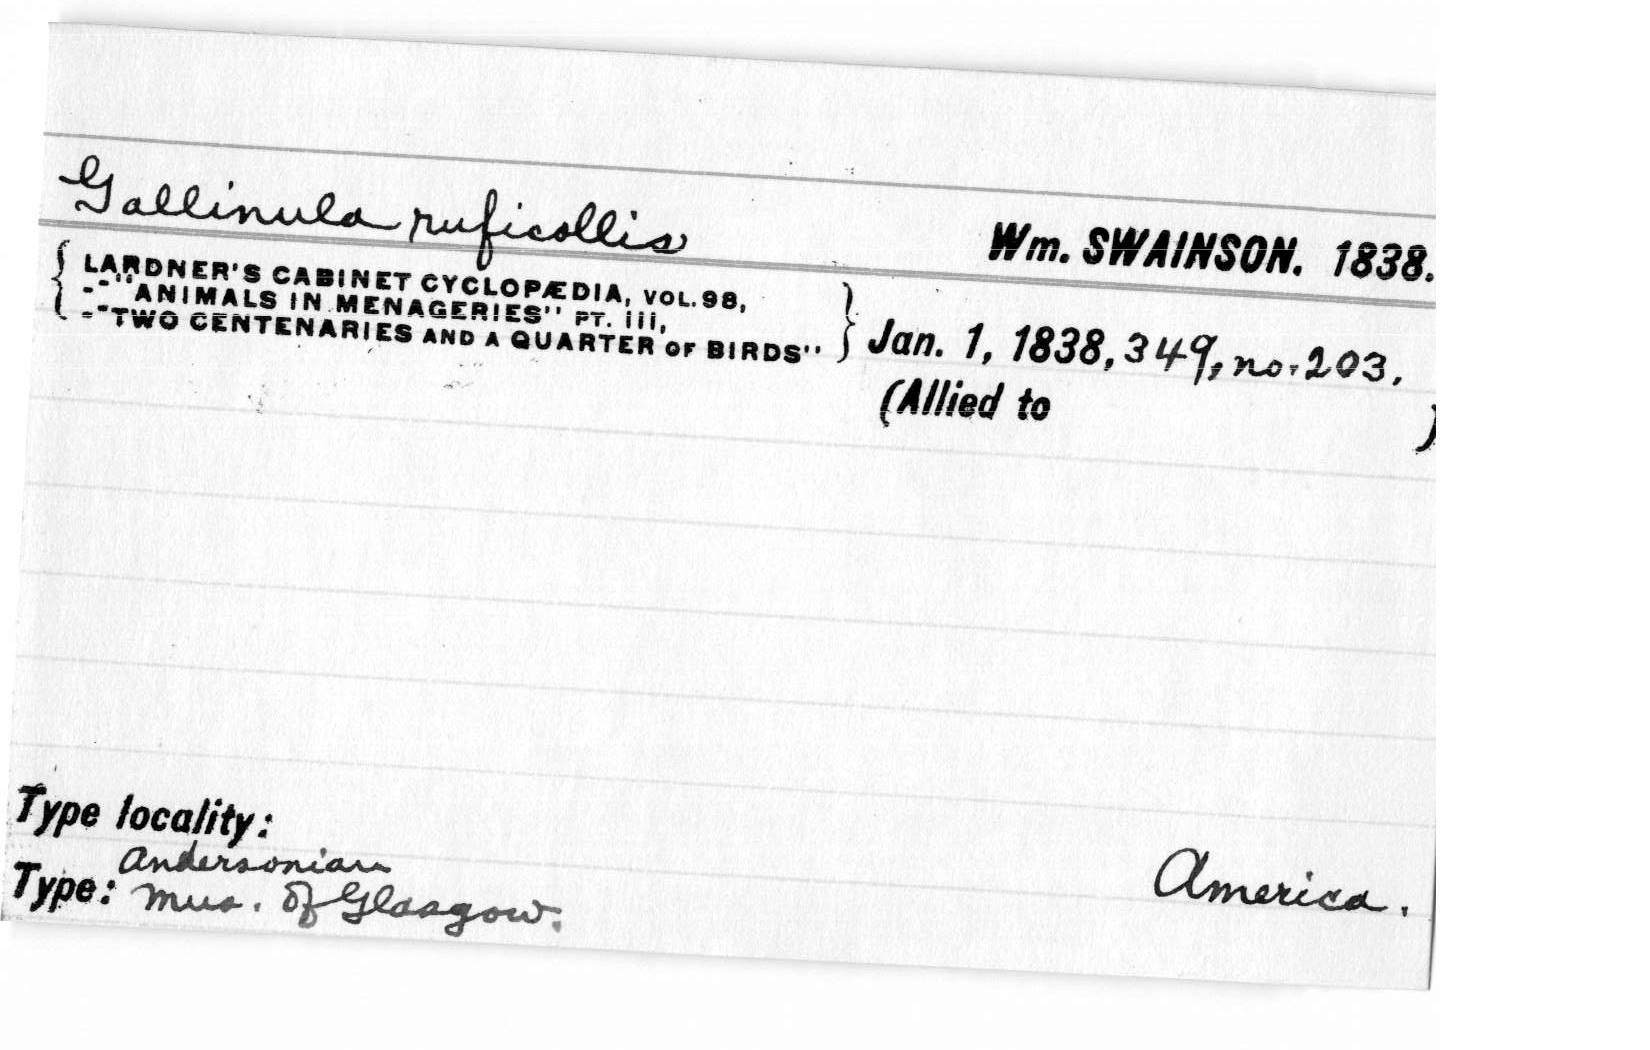 Gallinula ruficollis
Wm. SWAINSON. 1838.
{ LARDNER'S CABINET CYCLOPÆDIA, VOL. 98,
--"ANIMALS IN MENAGERIES" PT. iii,
--"TWO CENTENARIES AND A QUARTER OF BIRDS" } Jan. 1, 1838, 349, no. 203.
(Allied to )
Type locality:
Andersonian
Type: Mus. of Glasgow.
America.